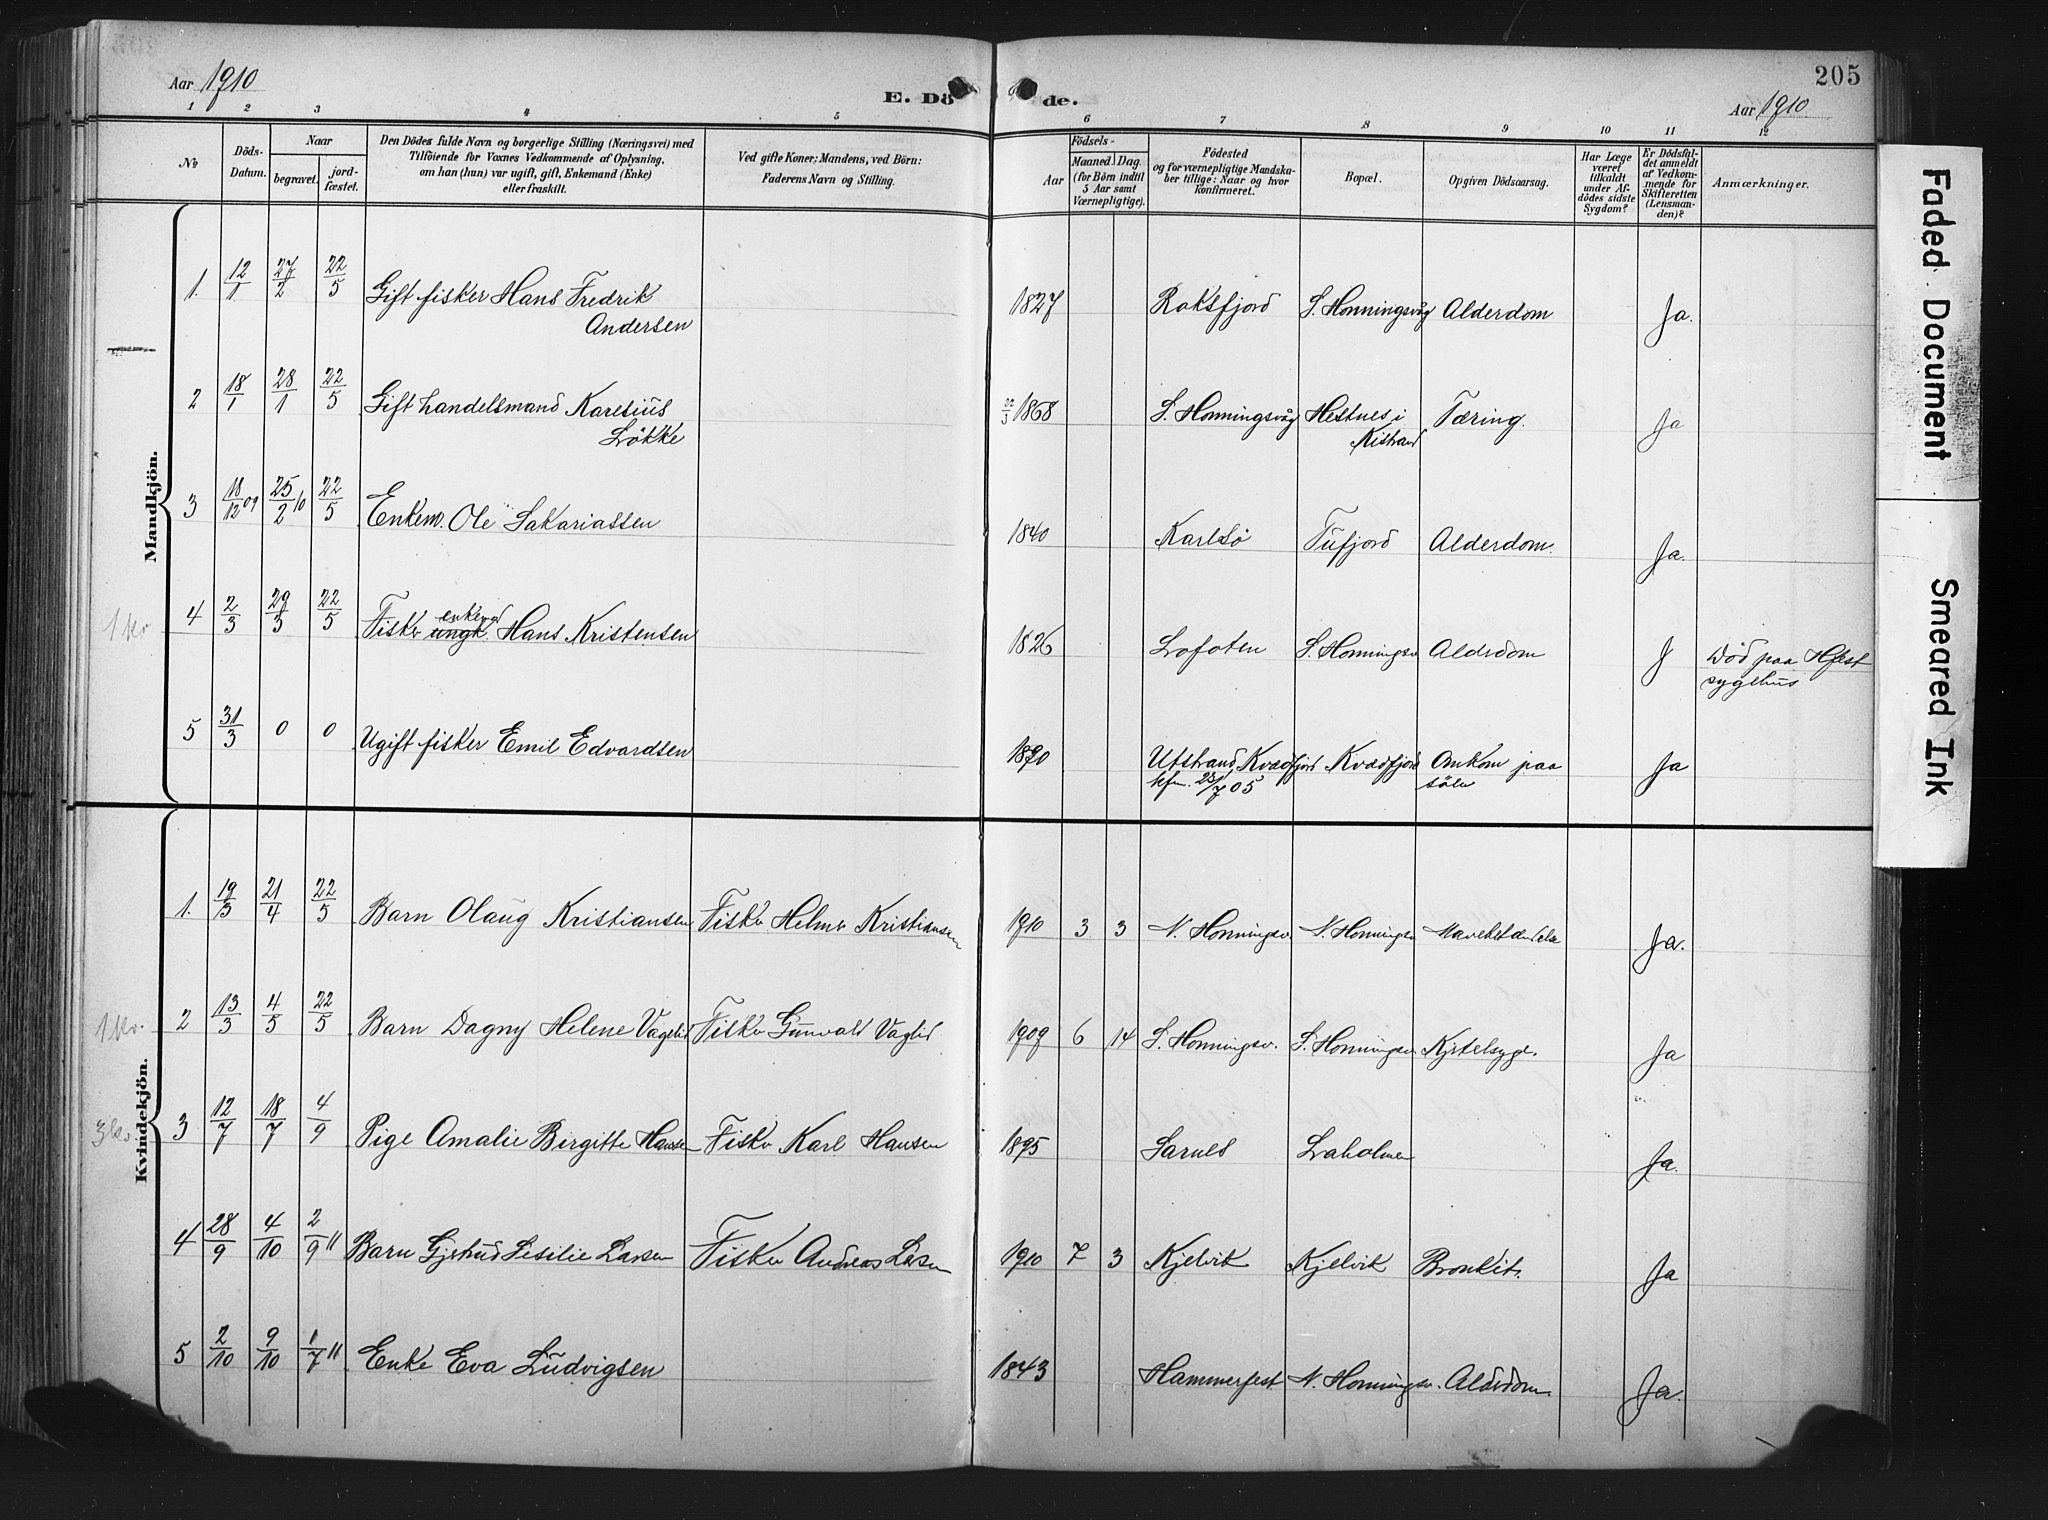 Aar 1910
E. Dö de.
205
Aar 1910.
1 2 3 4 5 6 7 8 9 10 11 12
No
Döds-
Datum.
Naar
begravet.
jord-
fæstet.
Den Dödes fulde Navn og borgerlige Stilling (Næringsvei) med
Tilföiende for Voxnes Vedkommende af Oplysning,
om han (hun) var ugift, gift, Enkemand (Enke)
eller fraskilt.
Ved gifte Koner: Mandens, ved Börn:
Faderens Navn og Stilling.
Födsels-
Aar
Maaned. Dag.
(for Börn indtil
5 Aar samt
Værnepligtige).
Födested
og for værnepligtige Mandska-
ber tillige: Naar og hvor
konfirmeret.
Bopæl.
Opgiven Dödsaarsag.
Har Læge
været
tilkaldt
under Af-
dödes sidste
Sygdom?
Er Dödsfal-
det anmeldt
af Vedkom-
mende for
Skifteretten
(Lensman-
den)?
Anmærkninger.
Mandkjön.
1. 12/1 27/2 22/5 Gift fisker Hans Fredrik
Andersen
1827 Roksfjord S. Honningsvåg Alderdom Ja.
2 18/1 28/1 22/5 Gift handelsmand Karelius
Løkke
22/3 1868 S. Honningsvåg Hestnes i
Kistrand
Tæring. Ja
3 18/12 09 25/2 10 22/5 Enkem. Ole Sakariassen
1840 Karlsö Tufjord Alderdom. Ja.
1 kv
4 2/3 29/3 22/5 Fisker ungk. enkem Hans Kristensen
1826 Lofoten S. Honningsv Alderdom J Død paa Hfest
sygehus
5 31/3 0 0 Ugift fisker Emil Edvardsen
1890 Utstrand Kvædfjord Kvædfjord Omkom paa
kfm. 23/7 05
söen
Ja
Kvindekjön.
1. 19/3 21/4 22/5 Barn Olaug Kristiansen Fisker Helmer Kristiansen
1910 3 3 N. Honningsv. N. Honningsv Ja.
1 kv.
2 13/3 4/5 22/5 Barn Dagny Helene Vaglid Fisker Gunvald Vaglid
1909 6 14 S. Honningsv. S. Honningsv. Kjertelsyge. Ja
3 kv.
3 12/7 18/7 4/9 Pige Amalie Birgitte Hansen Fisker Karl Hansen
1895 Sarnes Ja.
4 28/9 4/10 2/9 11 Barn Gjertrud Sesilie Larsen Fisker Andreas Larsen
1910 7 3 Kjelvik Kjelvik Bronkit. Ja
5 2/10 9/10 1/7 11 Enke Eva Ludvigsen
1843 Hammerfest N. Honningsv. Alderdom Ja.
Faded Document
Smeared Ink